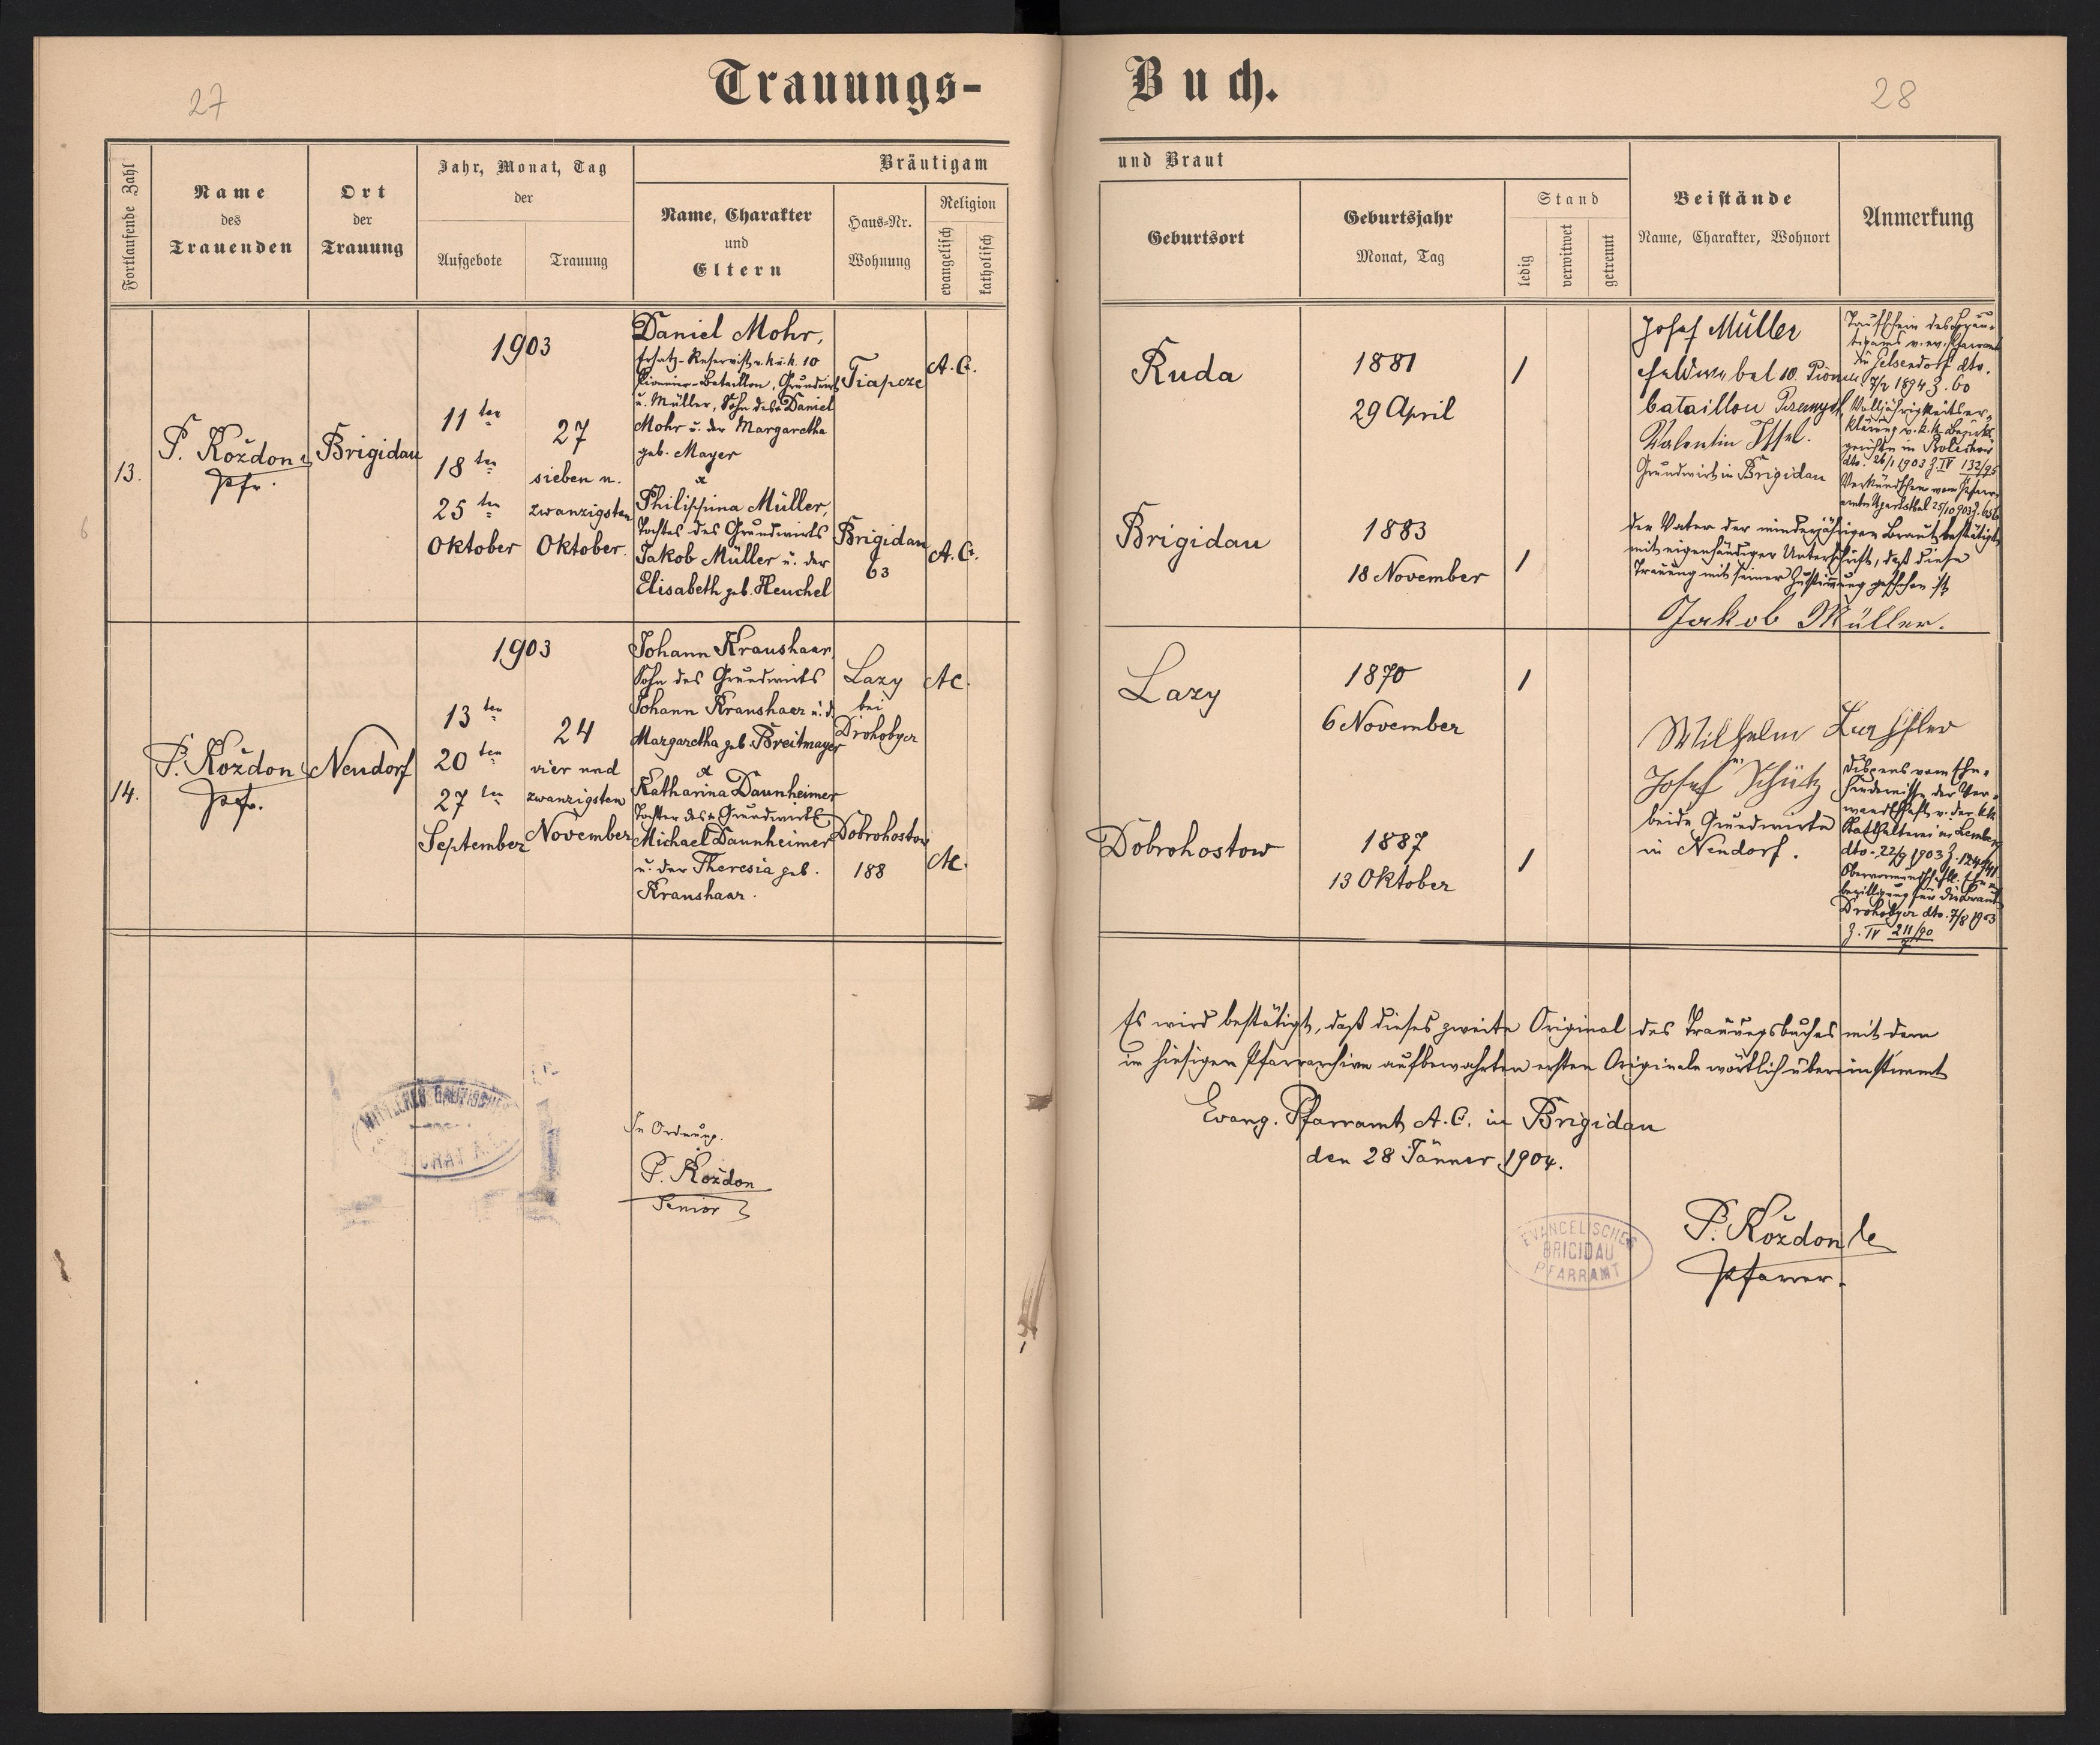 27
Trauungs-
Fortlaufende Zahl
Name
des
Trauenden
Ort
der
Trauung
Jahr, Monat, Tag
der
Aufgebote
Trauung
Bräutigam
Name, Charakter
und
Eltern
Haus-Nr.
Wohnung
Religion
evangelisch
katholisch
13.
P. Kożdon
Pfr.
Brigidau
1903
11ten
18ten
25ten
Oktober
27
sieben u.
zwanzigsten
Oktober.
Daniel Mohr,
Ersatz-Reservist v. k. u. k. 10
Pionnier-Bataillon, Grundwirt
u. Müller, Sohn des Daniel
Mohr u. der Margaretha
geb. Mayer
&
Philippina Müller,
Tochter des Grundwirts
Jakob Müller u. der
Elisabeth geb. Heuchel
Tiapcze
Brigidau
63
A. C.
A. C.
14.
P. Kożdon
Pfr.
Neudorf
1903
13ten
20ten
27ten
September
24
vier und
zwanzigsten
November
Johann Kraushaar,
Sohn des Grundwirts
Johann Kraushaar u. d.
Margaretha geb. Breitmayer
&
Katharina Daunheimer
Tochter des Grundwirts
Michael Daunheimer
u. der Theresia geb.
Kraushaar.
Lazy
bei
Drohobycz
Dobrohostow
188
AC.
AC.
In Ordnung.
P. Kożdon
Senior
28
Buch.
und Braut
Geburtsort
Geburtsjahr
Monat, Tag
Stand
ledig
verwitwet
getrennt
Beistände
Name, Charakter, Wohnort
Anmerkung
Ruda
1881
29 April
/
Josef Müller
Feldwebel 10. Pionier
bataillon Przemysl,
Valentin Issel.
Grundwirt in Brigidau
Taufschein des Bräu-
tigams v. ev. Pfarramt
in Gelsendorf dto.
7/2 1894 Z. 60
Volljährigkeitser-
klärung v. k. k. Bezirks-
gerichte in Bolechow
dto. 26/1 1903 Z. IV 132/95
Verkündschein vom Pfarr-
amte Ugartsthal 25/10 903 Z. 656
Brigidau
1883
18 November
/
Der Vater der minderjährigen Braut bestätigt
mit eigenhändiger Unterschrift, daß diese
Trauung mit seiner Zustimmung geschehen ist
Jakob Müller.
Lazy
1870
6 November
/
Wilhelm
u.
Josef Schütz
beide Grundwirte
in Neudorf.
Dispens vom Ehe-
hindernisse der Ver-
wandtschaft v. der kk
Statthalterei in Lemberg
dto. 22/9 1903 Z.
Obervormundschaftl. Ehe-
bewilligung für die Braut
Drohobycz dto. 7/8 1903
Z. IV 211/90
7
Dobrohostow
1887
13 Oktober
/
Es wird bestätigt, daß dieses zweite Original des Trauungsbuches mit dem
im hiesigen Pfarrarchive aufbewahrten ersten Originale wörtlich übereinstimmt
Evang. Pfarramt A. C. in Brigidau
den 28 Jänner 1904.
EVANGELISCHES
BRIGIDAU
PFARRAMT
P. Kożdon
Pfarrer.